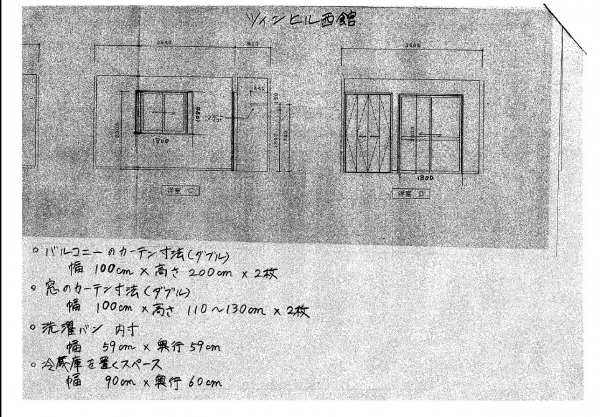 ツインヒル西館
1800
1000
1800
洋室 C
洋室 D
○ バルコニーのカーテン寸法(ダブル)
幅 100cm × 高さ 200cm × 2枚
○ 窓のカーテン寸法(ダブル)
幅 100cm × 高さ 110〜130cm × 2枚
○ 洗濯パン 内寸
幅 59cm × 奥行 59cm
○ 冷蔵庫を置くスペース
幅 90cm × 奥行 60cm